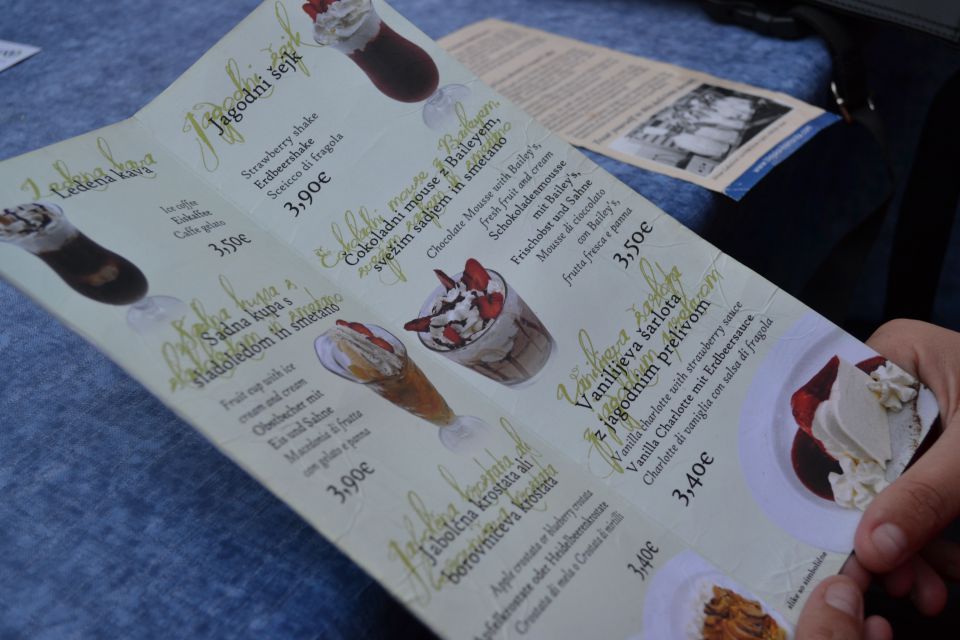 Ledena kava
Ledena kava
Ice coffe
Eiskaffee
Caffe gelato
3,50€
Sadna kupa s
sladoledom in smetano
Sadna kupa s
sladoledom in smetano
Fruit cup with ice
cream and cream
Obstbecher mit
Eis und Sahne
Macedonia di frutta
con gelato e panna
3,90€
Jagodni šejk
Jagodni šejk
Strawberry shake
Erdbeershake
Sceicco di fragola
3,90€
Čokoladni mouse z Baileyem,
svežim sadjem in smetano
Čokoladni mouse z Baileyem,
svežim sadjem in smetano
Chocolate Mousse with Bailey's,
fresh fruit and cream
Schokoladenmousse
mit Bailey's,
Frischobst und Sahne
Mousse di cioccolato
con Bailey's,
frutta fresca e panna
3,50€
Vanilijeva šarlota
z jagodnim prelivom
Vanilijeva šarlota
z jagodnim prelivom
Vanilla charlotte with strawberry sauce
Vanilla Charlotte mit Erdbeersauce
Charlotte di vaniglia con salsa di fragola
3,40€
Jabolčna krostata ali
borovničeva krostata
Jabolčna krostata ali
borovničeva krostata
Apple crostata or blueberry crostata
Apfelkrostate oder Heidelbeerenkrostate
Crostata di mela o Crostata di mirtilli
3,40€
slike so simbolične